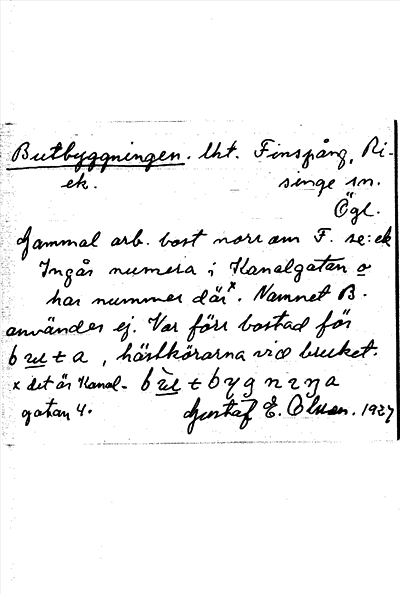 Butbyggningen. lht. Finspång, Ri-
ek. singe sn.
Ögl.
Gammal arb. bost norr om F. se: ek
Ingår numera i Kanalgatan o
har nummer där x. Namnet B.
användes ej. Var förr bostad för
buta, hästkörarna vid bruket.
x det är Kanal- bùtbygnɪŋa
gatan 4. Gustaf E. Olsson. 1927